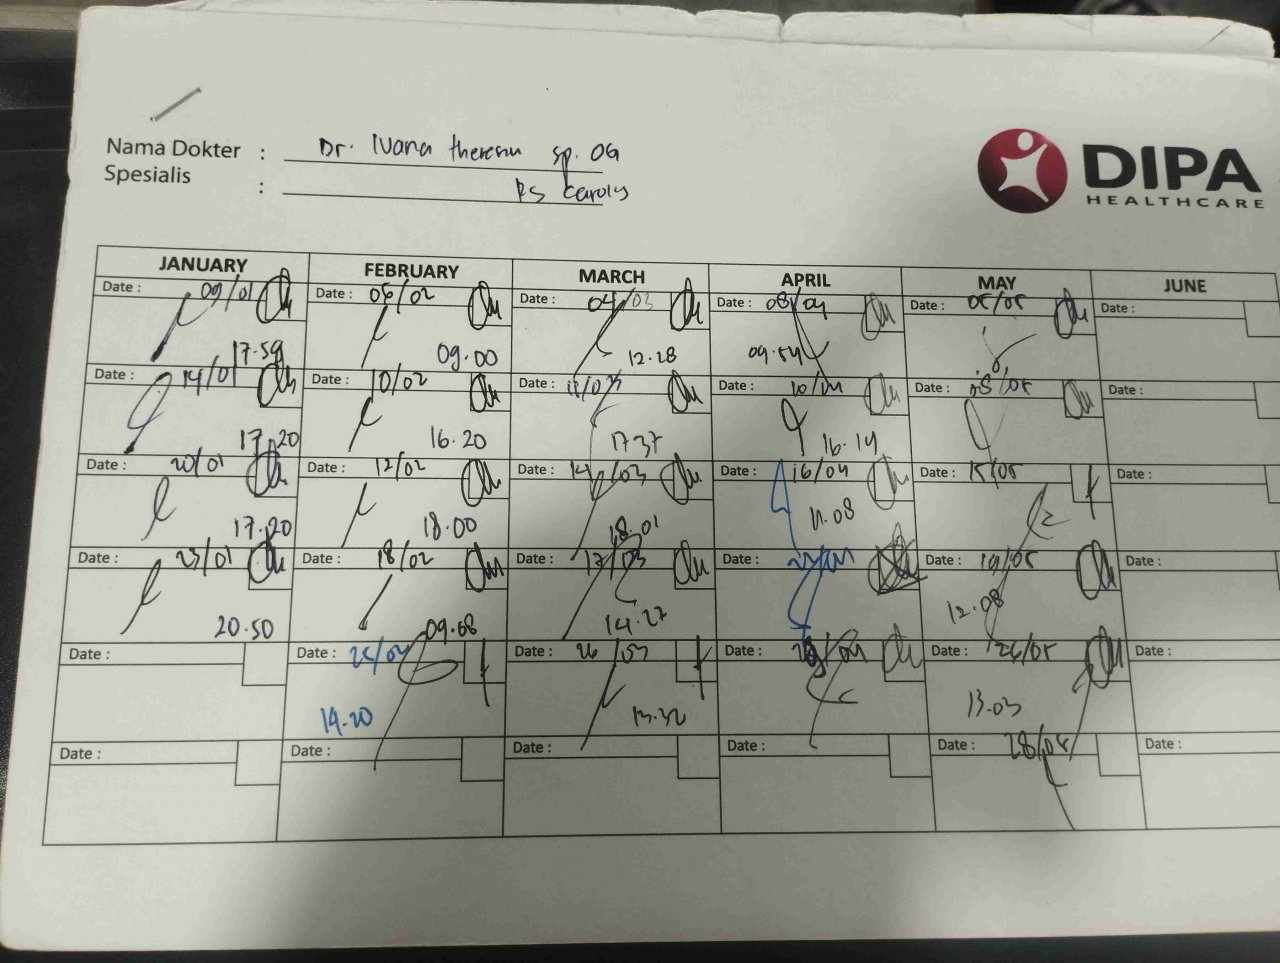 Nama Dokter : Dr. Ivana theresia sp. OG
Spesialis : RS Carolus
DIPA
HEALTHCARE
JANUARY FEBRUARY MARCH APRIL MAY JUNE
Date : 09/01 Date : 06/02 Date : 04/03 Date : 08/04 Date : 05/05 Date :
17.59 09.00 12.28 09.54
Date : 14/01 Date : 10/02 Date : 11/03 Date : 10/04 Date : 08/05 Date :
17.20 16.20 17.37 16.14
Date : 20/01 Date : 12/02 Date : 14/03 Date : 16/04 Date : 15/05 Date :
17.20 18.00 18.01 11.08
Date : 23/01 Date : 18/02 Date : 17/03 Date : Date : 19/05 Date :
20.50 09.08 14.27 12.08
Date : Date : 25/02 Date : 26/03 Date : Date : 26/05 Date :
14.20 13.32 13.03
Date : Date : Date : Date : Date : 28/05 Date :